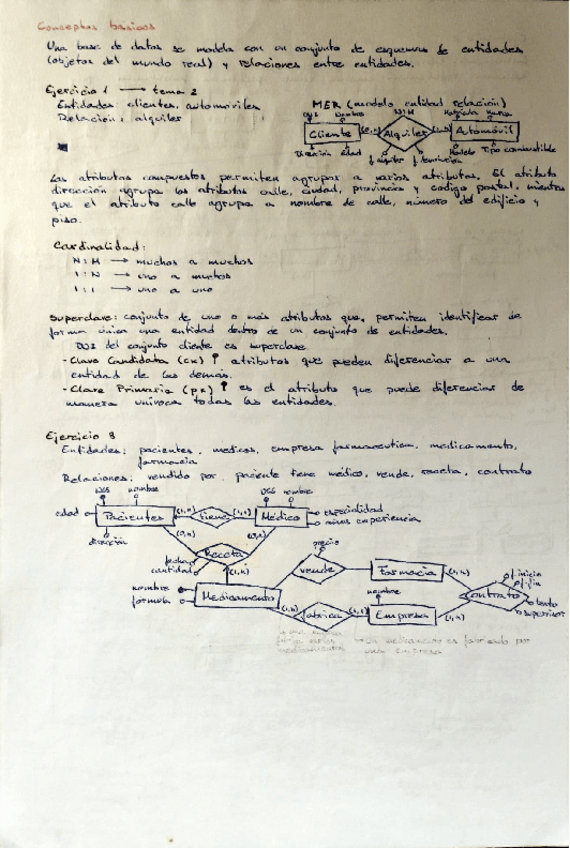 Conceptos básicos
Una base de datos se modela con un conjunto de esquemas de entidades
(objetos del mundo real) y relaciones entre entidades.
Ejercicio 1 → tema 2
Entidades: clientes, automóviles
Relación: alquiler
MER (modelo entidad relación)
Nombre N:M Matrícula Marca
Cliente Alquiler Automóvil
Dirección edad f. alquiler Modelo Tipo combustible
Los atributos compuestos permiten agrupar a varios atributos. El atributo
dirección agrupa los atributos calle, ciudad, provincia y código postal, mientras
que el atributo calle agrupa a nombre de calle, número del edificio y
piso.
Cardinalidad:
N:M → muchos a muchos
1:N → uno a muchos
1:1 → uno a uno
Superclave: conjunto de uno o más atributos que, permiten identificar de
forma única una entidad dentro de un conjunto de entidades.
del conjunto cliente es superclave
- Clave Candidata (CK) atributos que pueden diferenciar a una
entidad de las demás.
- Clave Primaria (PK) es el atributo que puede diferenciar de
manera unívoca todas las entidades.
Ejercicio 8
Entidades: pacientes, médicos, empresa farmaceutica, medicamento,
farmacia
Relaciones: vendido por, paciente tiene médico, vende, receta, contrato
nombre nombre
edad Pacientes (1,n) tiene (1,1) Médico especialidad
años experiencia
dirección (0,n) (0,n) precio
fecha Receta
cantidad (1,n) vende Farmacia (1,n) f. inicio
f. fin
nombre Medicamento nombre contrato
formula (1,n) fabrica Empresa (1,n) texto
supervisor
un medicamento es fabricado por
medicamentos una empresa